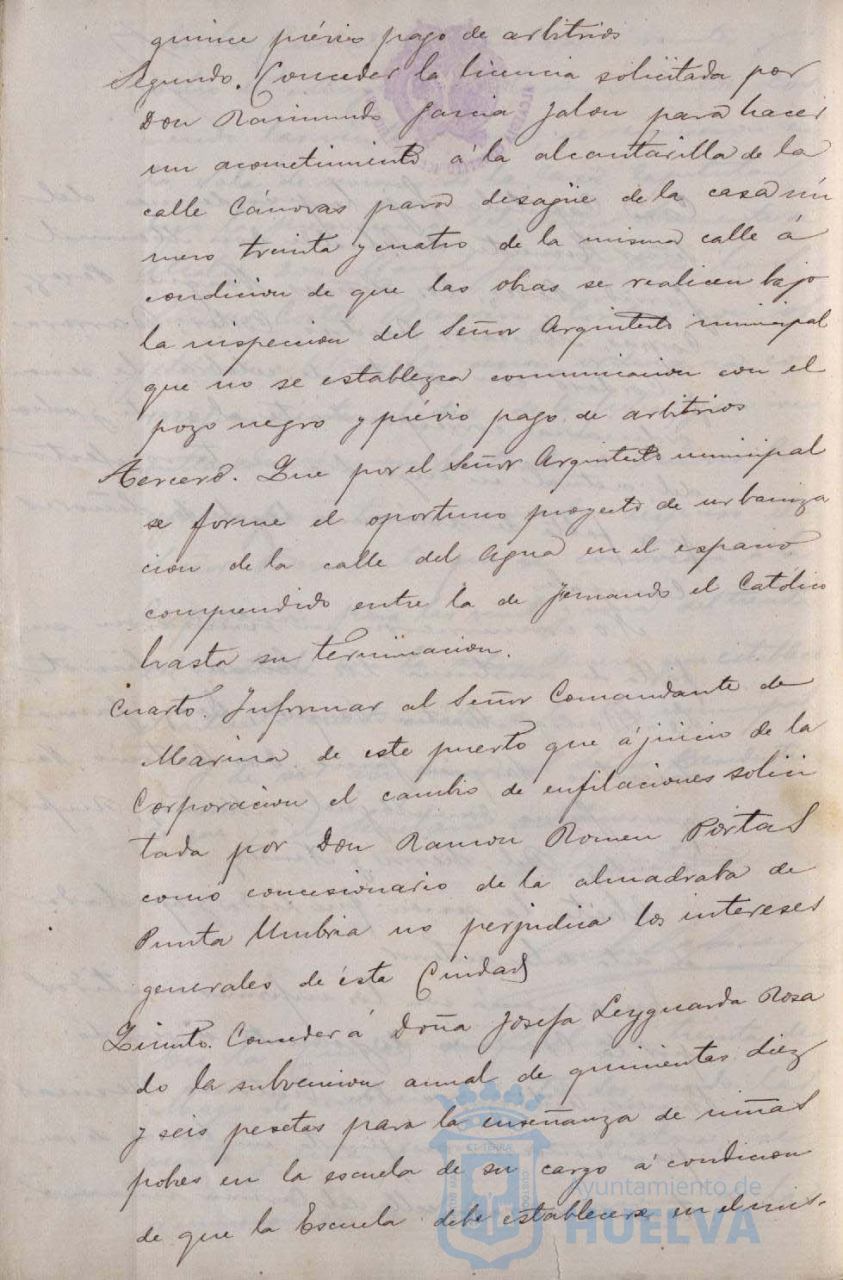 quince prévio pago de arbitrios
Segundo. Conceder la licencia solicitada por
Don Raimundo Garcia Jalon para hacer
un acometimiento á la alcantarilla de la
calle Cánovas para desagüe de la casa nú
mero treinta y cuatro de la misma calle á
condicion de que las obras se realicen bajo
la inspeccion del Señor Arquitecto municipal
que no se establezca comunicacion con el
pozo negro y prévio pago de arbitrios
Tercero. Que por el Señor Arquitecto municipal
se forme el oportuno proyecto de urbaniza
cion de la calle del Agua en el espacio
comprendido entre la de Fernando el Católico
hasta su terminacion.
Cuarto. Informar al Señor Comandante de
Marina de este puerto que á juicio de la
Corporacion el cambio de enfilaciones solici
tada por Don Ramon Romeu Portas
como concesionario de la almadraba de
Punta Umbria no perjudica los intereses
generales de ésta Ciudad
Quinto. Conceder á Doña Josefa Rosa
do la subvencion anual de quinientas diez
y seis pesetas para la enseñanza de niñas
pobres en la escuela de su cargo á condicion
de que la Escuela debe establecerse en el mis-
Ayuntamiento de
HUELVA